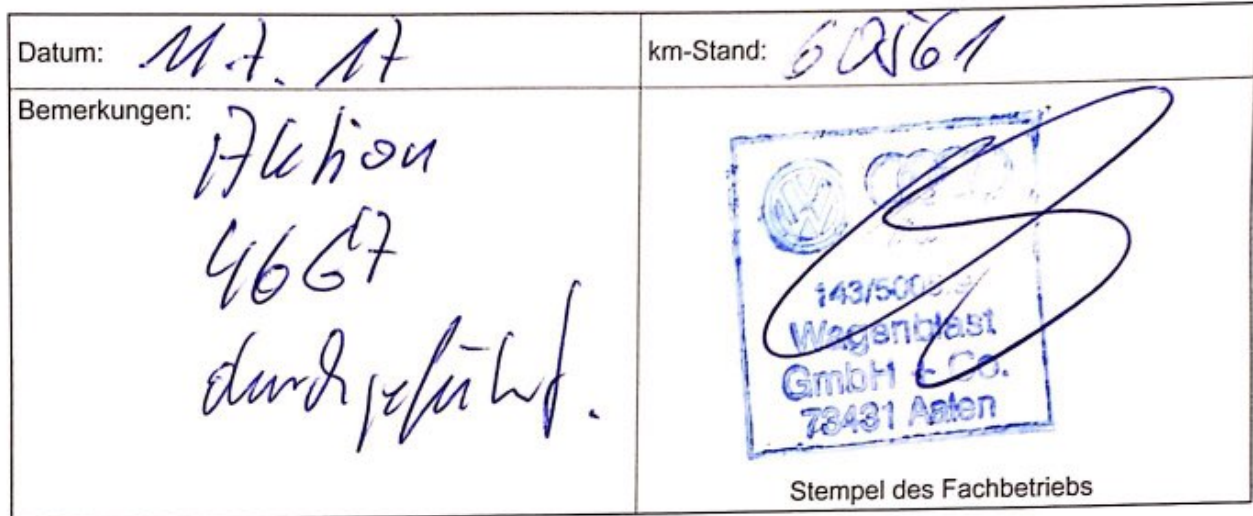 Datum: 11.7.17
km-Stand: 60561
Bemerkungen:
Aktion
4667
durchgeführt.
VW
Wagenblast
GmbH + Co.
73431 Aalen
Stempel des Fachbetriebs